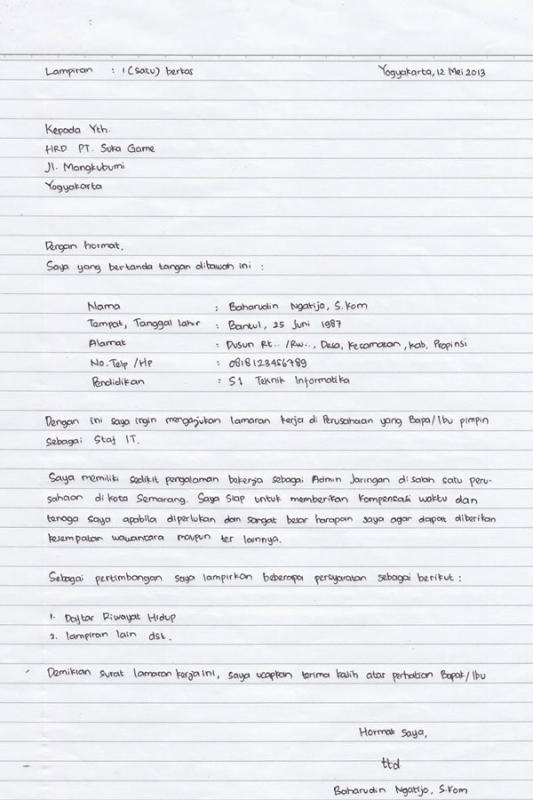 Lampiran : 1 (satu) berkas Yogyakarta, 12 Mei 2013
Kepada Yth.
HRD PT. Suka Game
Jl. Mangkubumi
Yogyakarta
Dengan hormat,
Saya yang bertanda tangan dibawah ini :
Nama : Baharudin Ngatijo, S.Kom
Tempat, Tanggal lahir : Bantul, 25 Juni 1987
Alamat : Dusun Rt.. /Rw.., Desa, Kecamatan, Kab, Propinsi
No. Telp /Hp : 0818123456789
Pendidikan : S1 Teknik Informatika
Dengan ini saya ingin mengajukan lamaran kerja di Perusahaan yang Bapa/Ibu pimpin
sebagai Staf IT.
Saya memiliki sedikit pengalaman bekerja sebagai Admin Jaringan di salah satu peru-
sahaan di kota Semarang. Saya siap untuk memberikan kompensasi waktu dan
tenaga saya apabila diperlukan dan sangat besar harapan saya agar dapat diberikan
kesempatan wawancara maupun tes lainnya.
Sebagai pertimbangan saya lampirkan beberapa persyaratan sebagai berikut :
1. Daftar Riwayat Hidup
2. lampiran lain dst.
Demikian surat lamaran kerja ini, saya ucapkan terima kasih atas perhatian Bapak/Ibu
Hormat Saya,
ttd
Baharudin Ngatijo, S.Kom